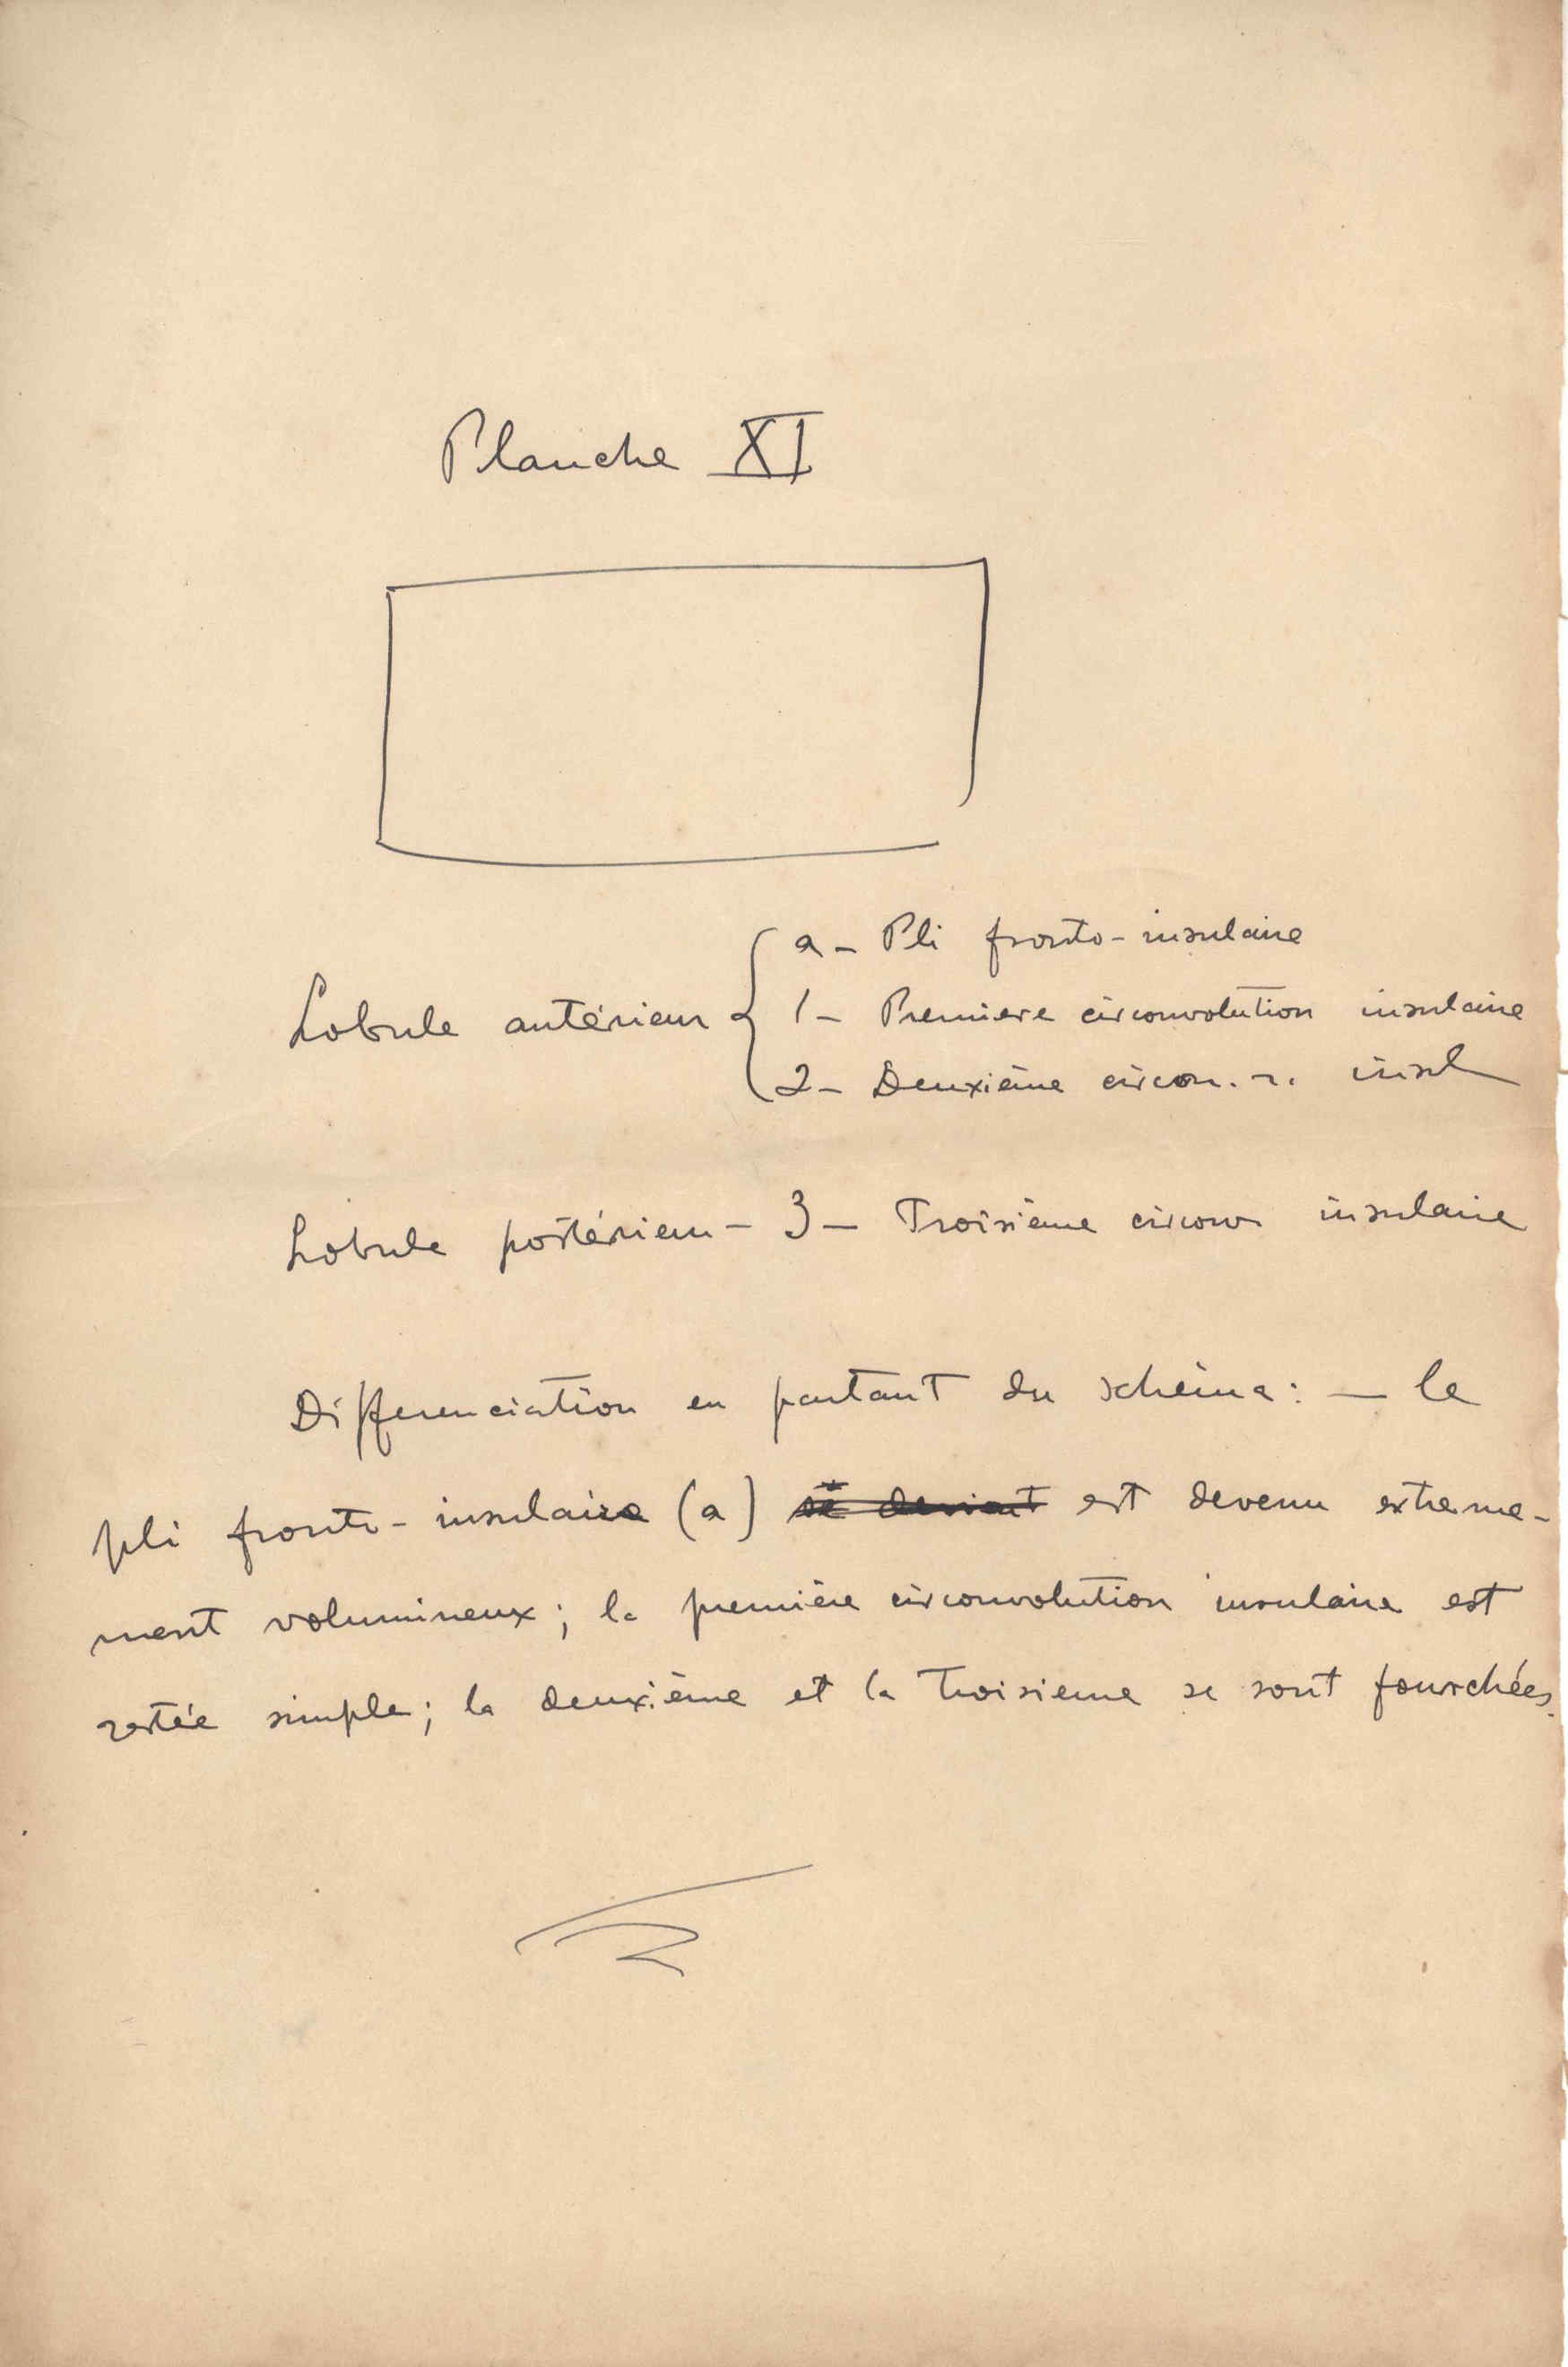 Planche XI
a - Pli fronto-insulaire
Lobule antérieur { 1 - Premiere circonvolution insulaire
2 - Deuxième circon. n. insul
Lobule postérieur - 3 - Troisième circonv insulaire
Differenciation en partant du schéma : — le
pli fronto-insulaire (a) se devient est devenu extreme-
ment volumineux ; la première circonvolution insulaire est
restée simple ; la deuxième et la troisieme se sont fourchées.